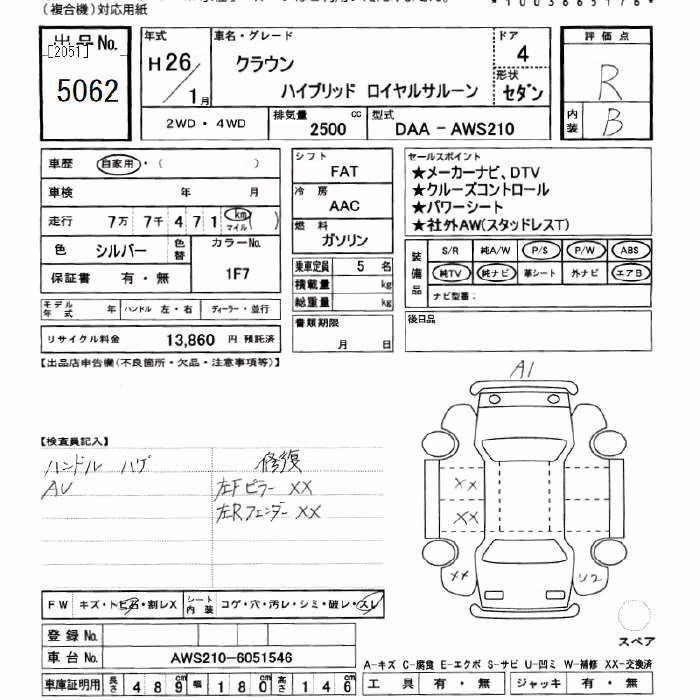 (複合機)対応用紙
*1003665176*
出品No.
[2051]
5062
年式
H26/1月
車名・グレード
クラウン
ハイブリッド ロイヤルサルーン
ドア
4
形状
セダン
評価点
R
内装
B
2WD・4WD
排気量
2500 cc
型式
DAA-AWS210
車歴 自家用・( )
車検 年 月
走行 7万 7千 4 7 1 km マイル ( )
色 シルバー 色替
カラーNo.
1F7
保証書 有・無
モデル年式 年 ハンドル 左・右 ディーラー・並行
リサイクル料金 13,860 円 預託済
シフト
FAT
冷房
AAC
燃料
ガソリン
乗車定員 5 名
積載量 kg
総重量 kg
書類期限
月 日
セールスポイント
★メーカーナビ、DTV
★クルーズコントロール
★パワーシート
★社外AW(スタッドレスT)
装備品
S/R 純A/W P/S P/W ABS
純TV 純ナビ 革シート 外ナビ エアB
ナビ型番:
後日品
【出品店申告欄(不良箇所・欠品・注意事項等)】
【検査員記入】
ハンドル ハゲ
AU
修復
左Fピラー XX
左Rフェンダー XX
A1
XX
XX
XX
U2
スペア
FW キズ・トビ石・割レX
シート内装 コゲ・穴・汚レ・シミ・破レ・スレ
登録No.
車台No. AWS210-6051546
車庫証明用 長さ 489cm 幅 180cm 高さ 146cm
A-キズ C-腐食 E-エクボ S-サビ U-凹ミ W-補修 XX-交換済
工具 有・無 ジャッキ 有・無